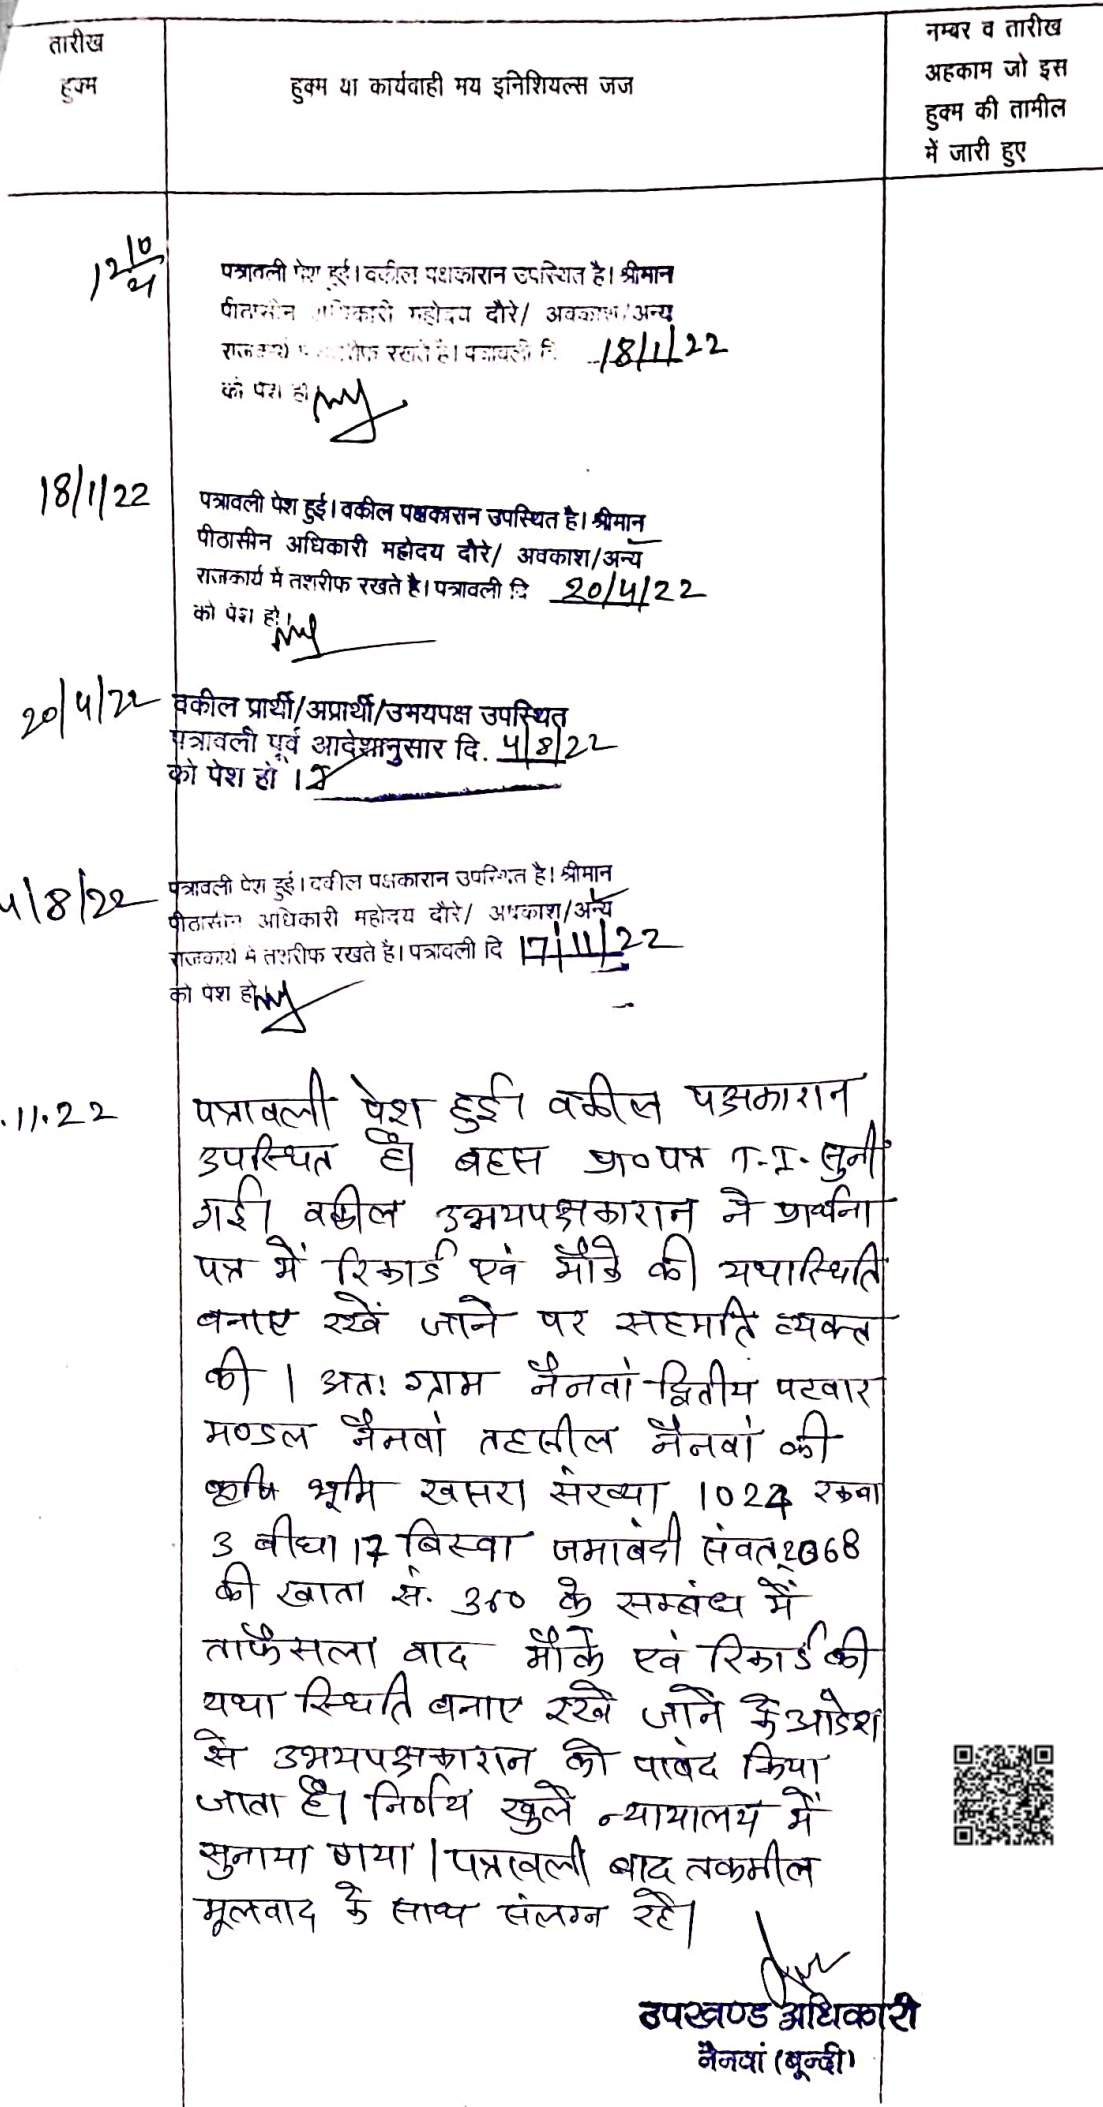 तारीख
हुक्म
हुक्म या कार्यवाही मय इनिशियल्स जज
नम्बर व तारीख
अहकाम जो इस
हुक्म की तामील
में जारी हुए
पत्रावली पेश हुई। वकील पक्षकारान उपस्थित है। श्रीमान
पीठासीन अधिकारी महोदय दौरे/ अवकाश/अन्य
राजकार्य में तशरीफ रखते है। पत्रावली दि 18/1/22
को पेश हो
18/1/22
पत्रावली पेश हुई। वकील पक्षकारान उपस्थित है। श्रीमान
पीठासीन अधिकारी महोदय दौरे/ अवकाश/अन्य
राजकार्य में तशरीफ रखते है। पत्रावली दि 20/4/22
को पेश हो।
20/4/22
वकील प्रार्थी/अप्रार्थी/उभयपक्ष उपस्थित
पत्रावली पूर्व आदेशानुसार दि. 4/8/22
को पेश हो ।
4/8/22
पत्रावली पेश हुई। वकील पक्षकारान उपस्थित है। श्रीमान
पीठासीन अधिकारी महोदय दौरे/ अवकाश/अन्य
राजकार्य में तशरीफ रखते है। पत्रावली दि 17/11/22
को पेश हो
.11.22
पत्रावली पेश हुई। वकील पक्षकारान
उपस्थित है। बहस प्रा०पत्र T.I. सुनी
गई। वकील उभयपक्षकारान ने प्रार्थना
पत्र में रिकार्ड एवं मौके की यथास्थिति
बनाए रखें जाने पर सहमति व्यक्त
की । अतः ग्राम नैनवां द्वितीय पटवार
मण्डल नैनवां तहसील नैनवां की
कृषि भूमि खसरा संख्या 1024 रकबा
3 बीघा 17 बिस्वा जमाबंदी संवत् 2068
की खाता सं. के सम्बंध में
ताफैसला वाद मौके एवं रिकार्ड की
यथा स्थिति बनाए रखे जाने के आदेश
से उभयपक्षकारान को पाबंद किया
जाता है। निर्णय खुले न्यायालय में
सुनाया गया । पत्रावली बाद तकमील
मूलवाद के साथ संलग्न रहे।
उपखण्ड अधिकारी
नैनवां (बून्दी)